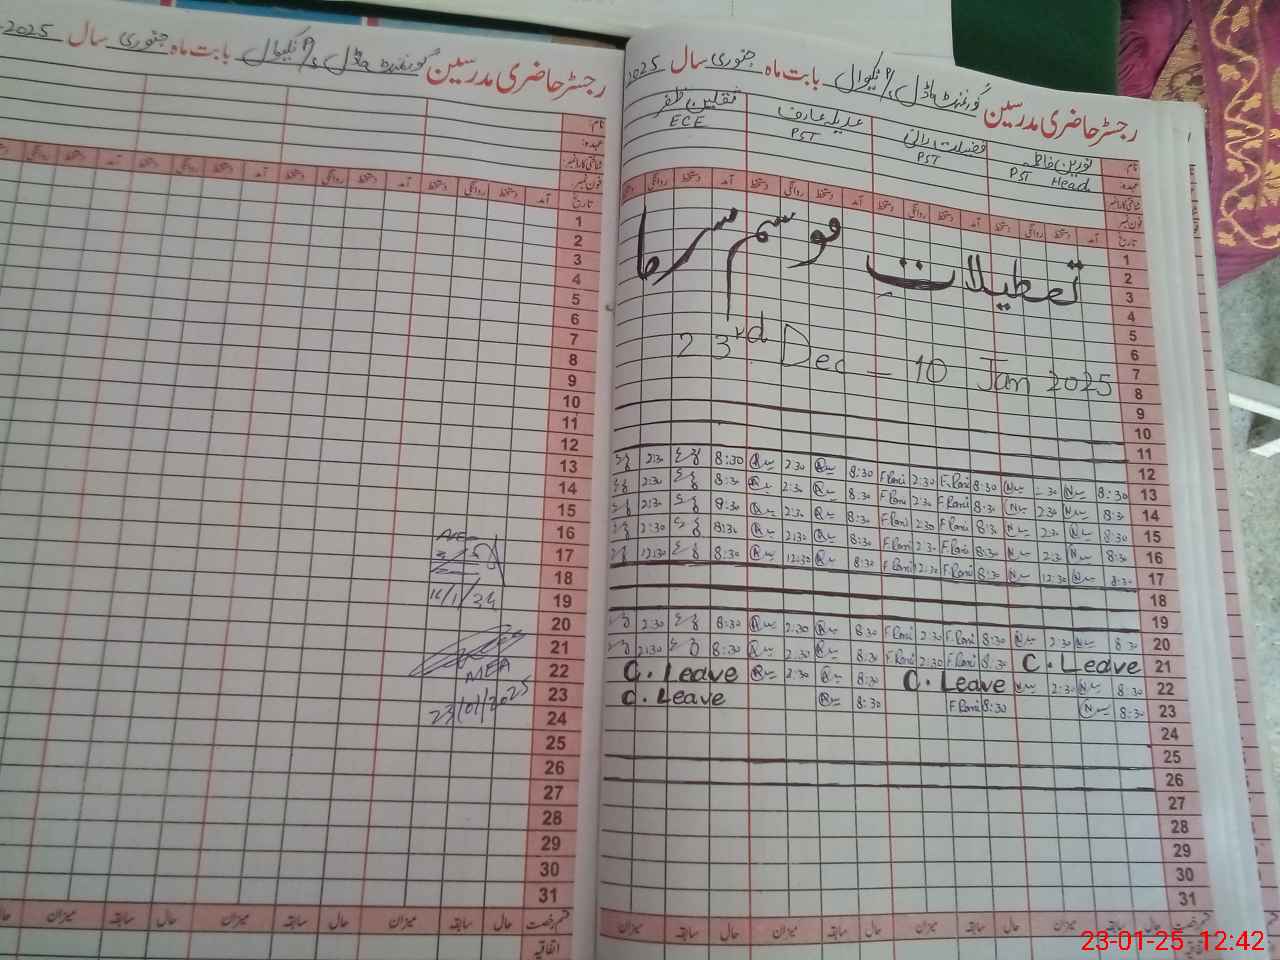 رجسٹر حاضری مدرسین گورنمنٹ ماڈل بابت ماہ جنوری سال 2025
نام
عہدہ:
شناختی کارڈ نمبر:
فون نمبر:
تاریخ آمد دستخط روانگی دستخط آمد دستخط روانگی دستخط آمد دستخط روانگی دستخط
1
2
3
4
5
6
7
8
9
10
11
12
13
14
15
16
17
18
19
20
21
22 MEA
23
24 23/01/2025
25
26
27
28
29
30
31
قسم رخصت حال سابقہ میزان حال سابقہ میزان حال سابقہ میزان حال
اتفاقیہ
رجسٹر حاضری مدرسین گورنمنٹ ماڈل بابت ماہ جنوری سال 2025
نام: نورین فاطمہ فضیلت رانی عدیلہ عارف ثقلین ظفر
عہدہ: PST Head PST PST ECE
شناختی کارڈ نمبر
فون نمبر
تاریخ آمد دستخط روانگی دستخط آمد دستخط روانگی دستخط آمد دستخط روانگی دستخط آمد دستخط روانگی دستخط
تعطیلات موسم سرما
23rd Dec - 10 Jan 2025
1
2
3
4
5
6
7
8
9
10
11
12
2:30 8:30 2:30 8:30 F.Rani 2:30 F.Rani 8:30 2:30 8:30 13
2:30 8:30 2:30 8:30 F.Rani 2:30 F.Rani 8:30 2:30 8:30 14
2:30 8:30 2:30 8:30 F.Rani 2:30 F.Rani 8:30 2:30 8:30 15
2:30 8:30 2:30 8:30 F.Rani 2:30 F.Rani 8:30 2:30 8:30 16
12:30 8:30 12:30 8:30 F.Rani 12:30 F.Rani 8:30 12:30 8:30 17
18
19
2:30 8:30 2:30 8:30 F.Rani 2:30 F.Rani 8:30 2:30 8:30 20
2:30 8:30 2:30 8:30 F.Rani 2:30 F.Rani 8:30 C. Leave 21
C. Leave 2:30 8:30 C. Leave 2:30 8:30 22
C. Leave 8:30 F.Rani 8:30 8:30 23
24
25
26
27
28
29
30
31
قسم رخصت حال سابقہ میزان حال سابقہ میزان حال سابقہ میزان حال سابقہ میزان
اتفاقیہ
23-01-25 12:42